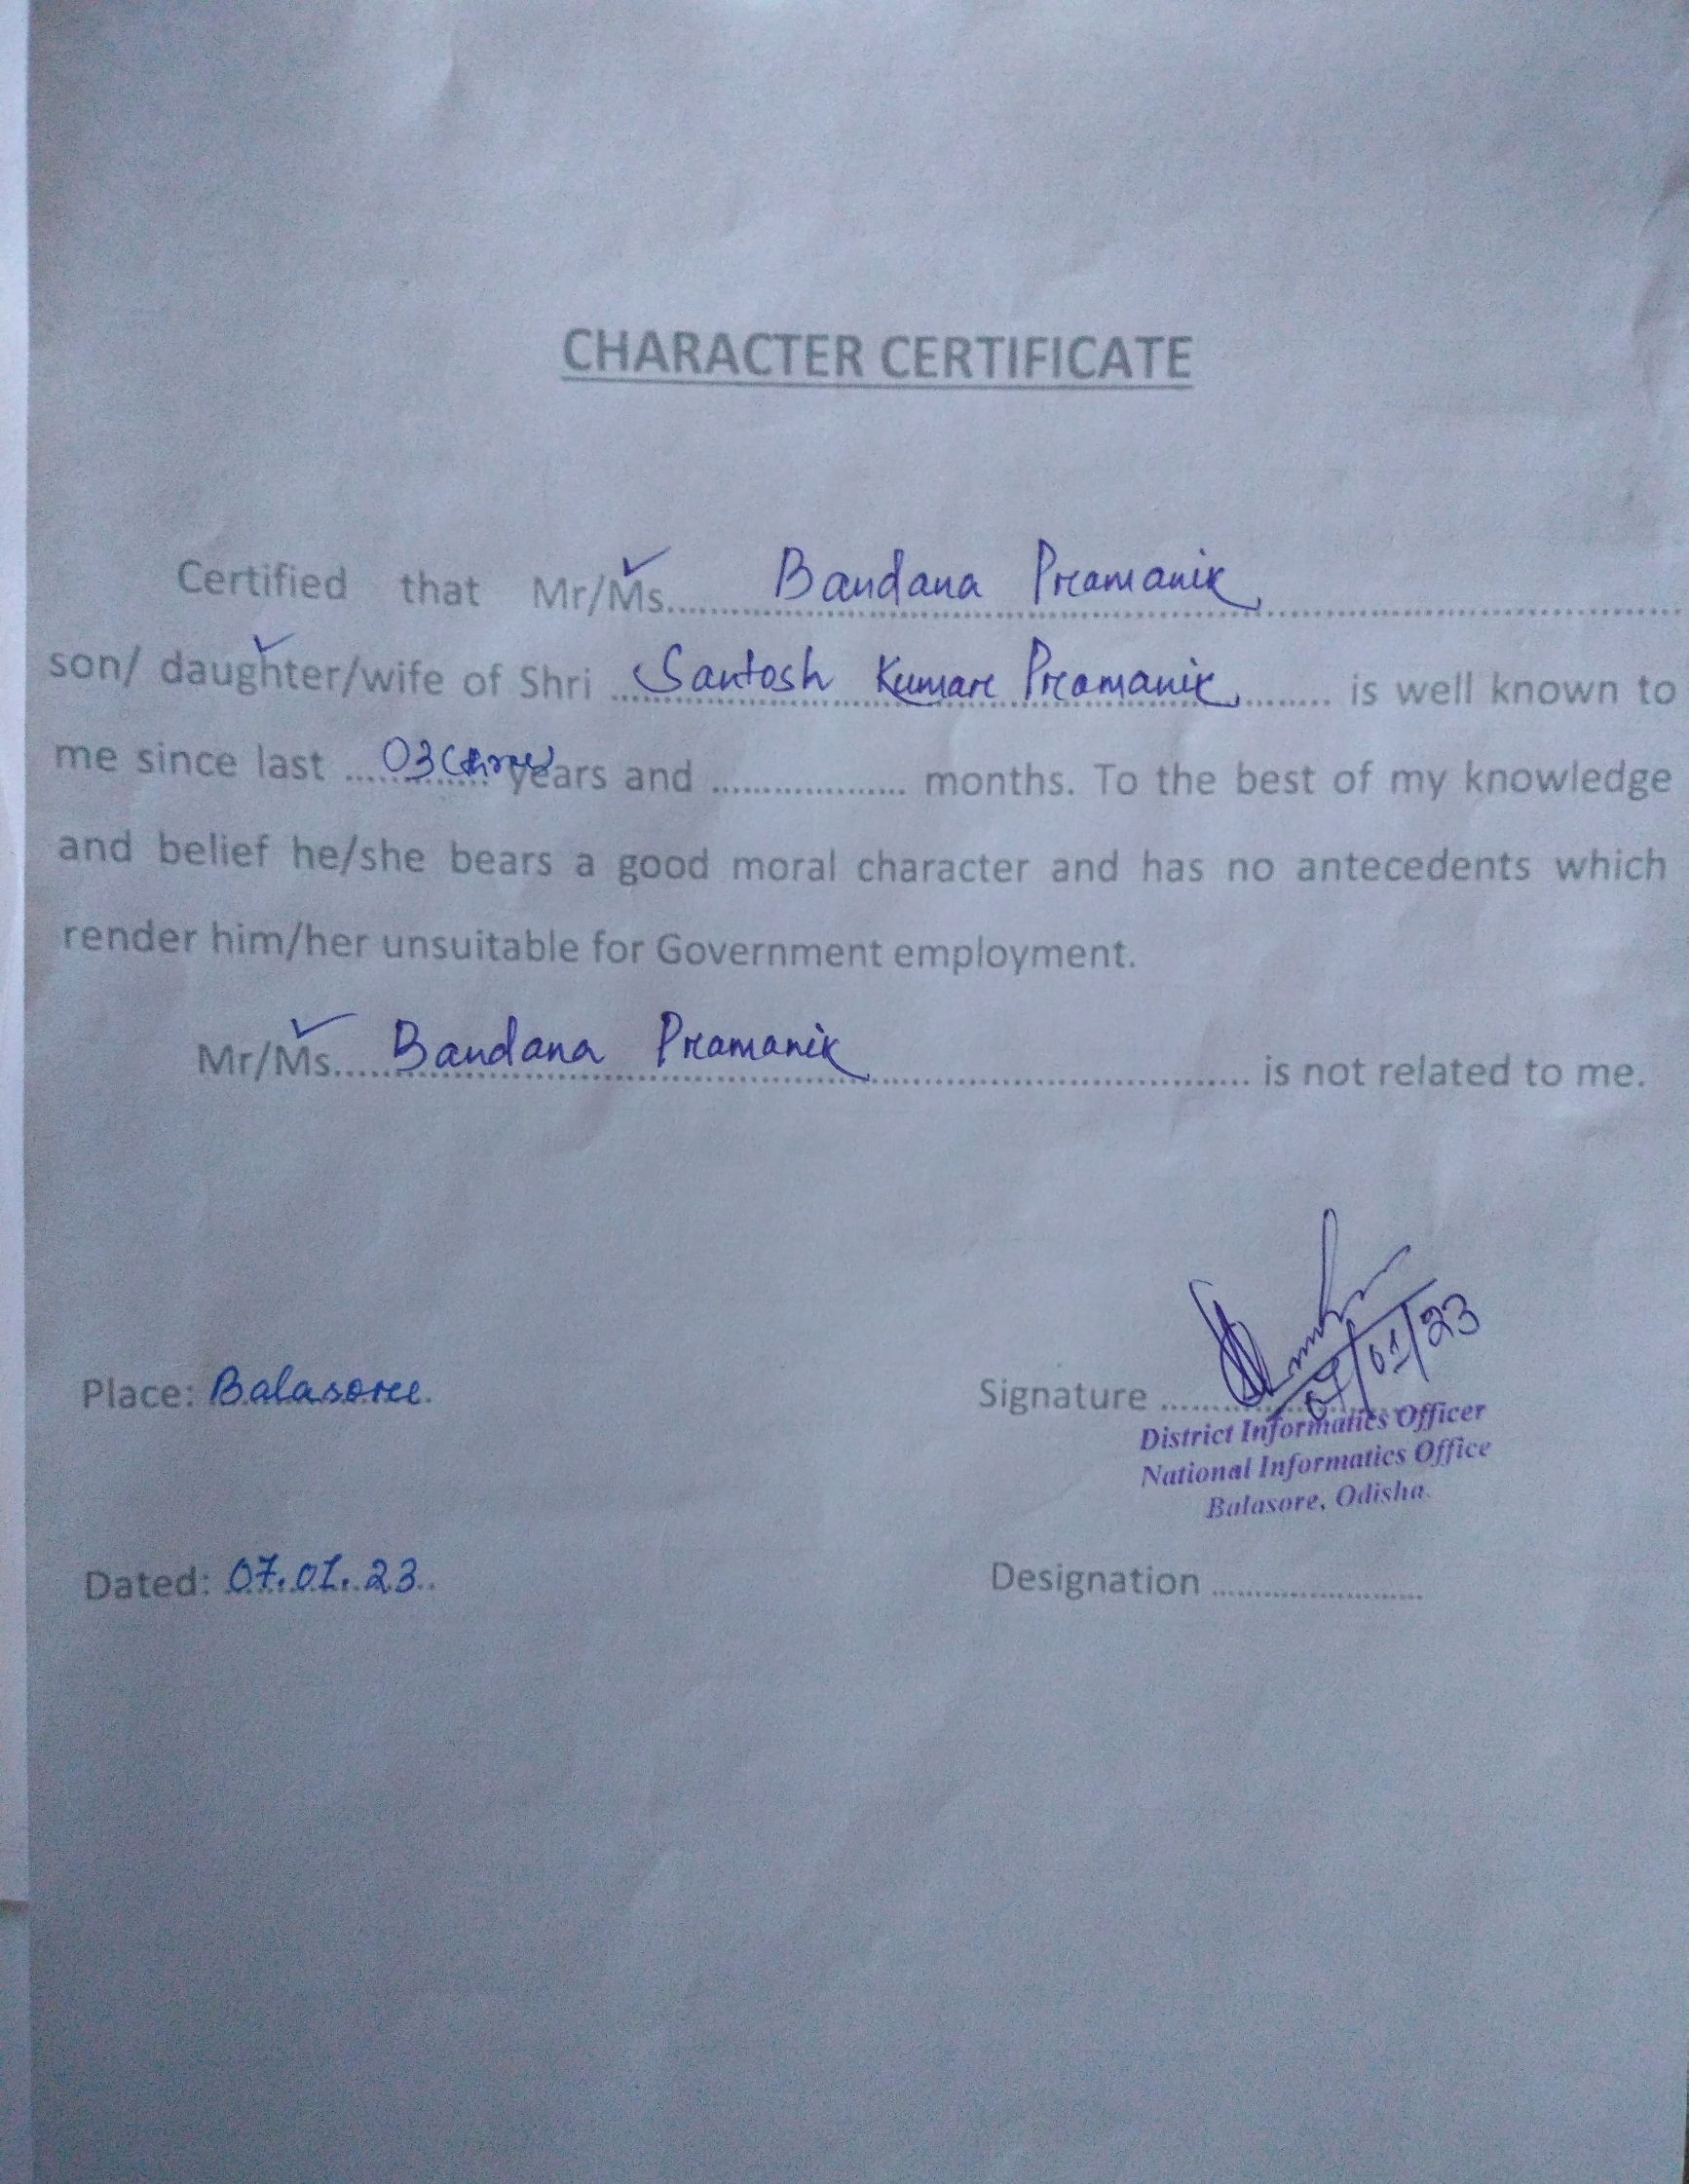 CHARACTER CERTIFICATE
Certified that Mr/Ms. Bandana Pramanik
son/ daughter/wife of Shri Santosh Kumar Pramanik is well known to
me since last 03 (three) years and .................. months. To the best of my knowledge
and belief he/she bears a good moral character and has no antecedents which
render him/her unsuitable for Government employment.
Mr/Ms. Bandana Pramanik is not related to me.
Place: Balasore.
Signature
07/01/23
District Informatics Officer
National Informatics Office
Balasore, Odisha.
Dated: 07.01.23
Designation ......................